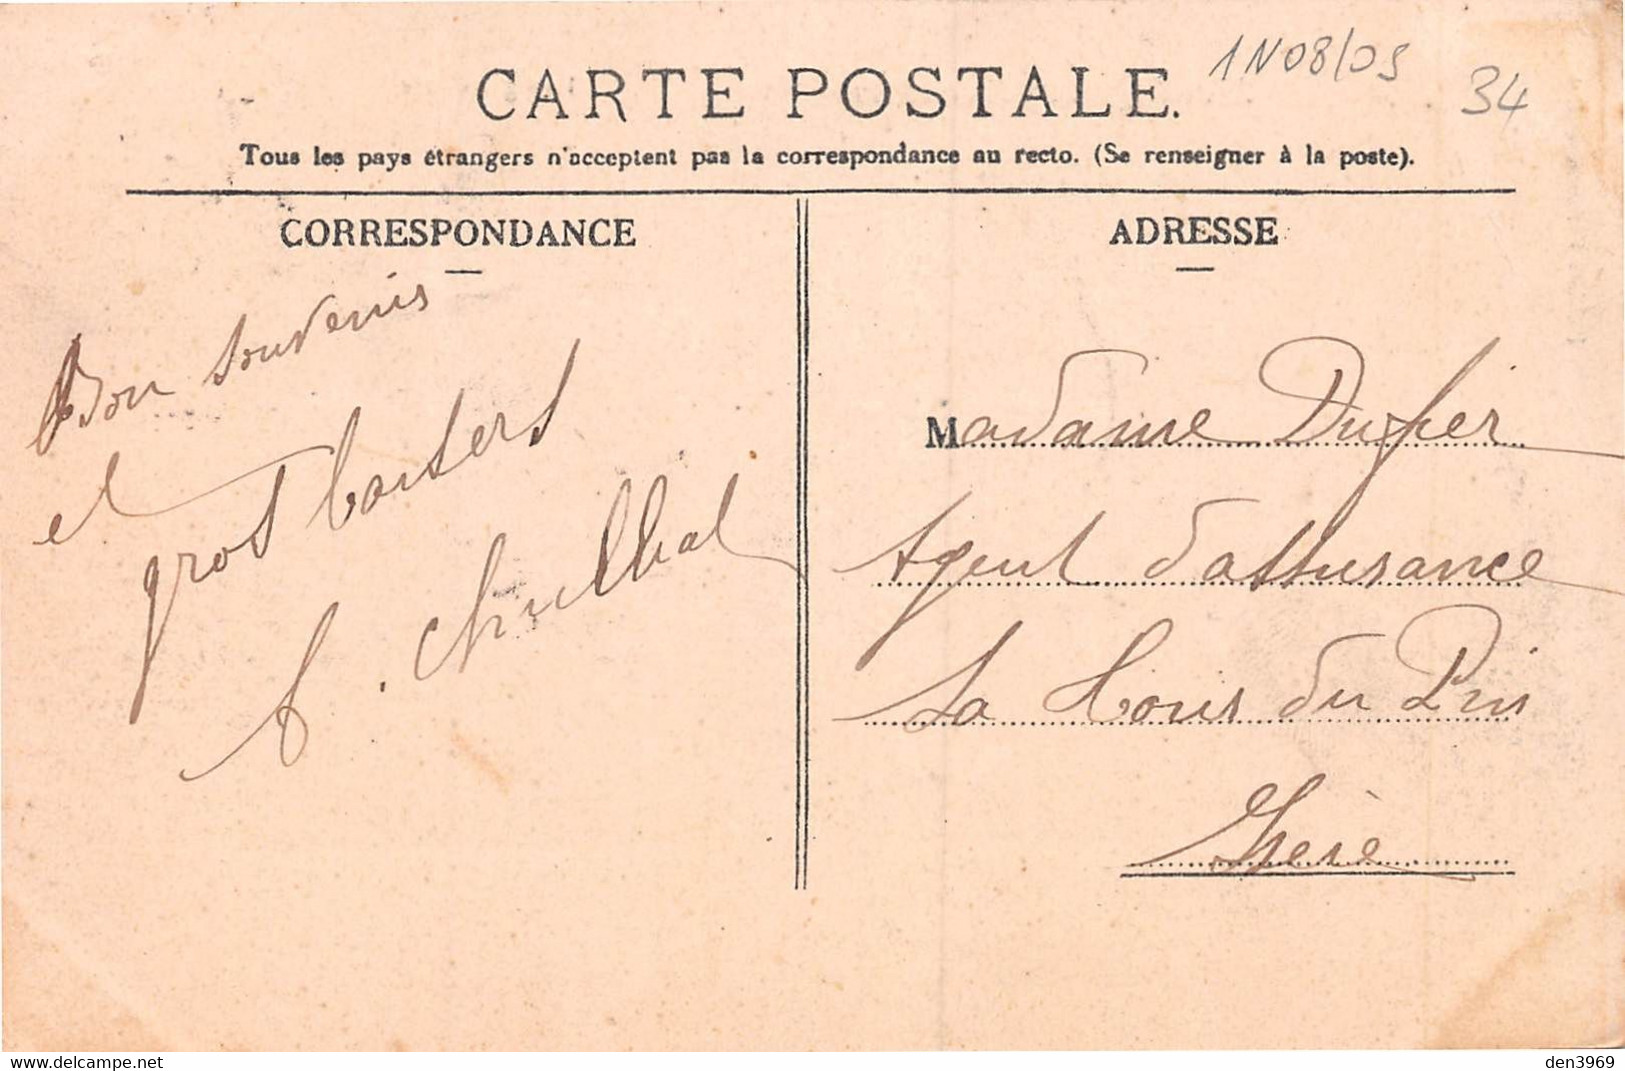 1N08/05
34
CARTE POSTALE.
Tous les pays étrangers n'acceptent pas la correspondance au recto. (Se renseigner à la poste).
CORRESPONDANCE
ADRESSE
Bon souvenis
et
gros baisers
Madame
Agent d'assurance
La Tour du Pin
Isère
Delcampe.net
den3969